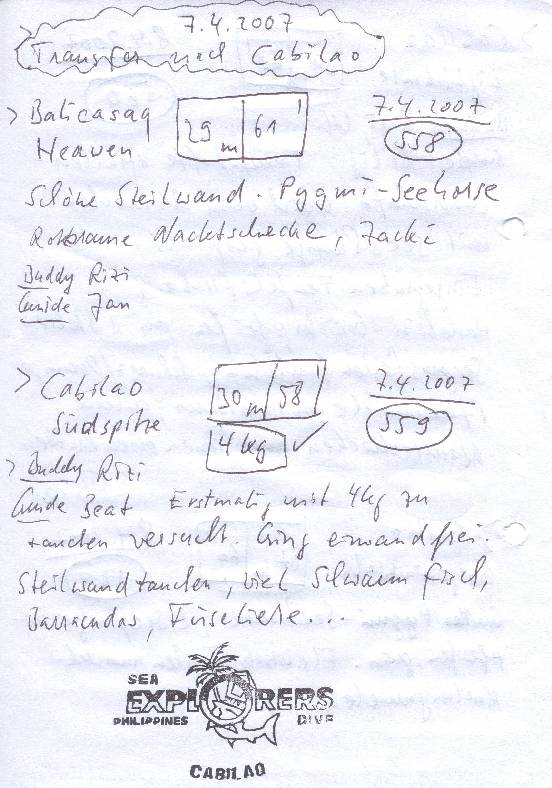 7.4.2007
Transfer nach Cabilao
> Balicasag
Heaven
29 m 61'
7.4.2007
558
Schöne Steilwand. Pygmi-Seehorse
Rotbraune Nacktschecke, Zacki
Buddy Rizi
Guide Jan
> Cabilao
Südspitze
30 m 58'
4 kg ✓
7.4.2007
559
> Buddy Rizi
Guide Beat Erstmalig mit 4kg zu
tauchen versucht. Ging einwandfrei.
Steilwandtauchen, viel Schwarmfisch,
Barracudas, Füseliere...
SEA
EXPLORERS
PHILIPPINES DIVE
CABILAO